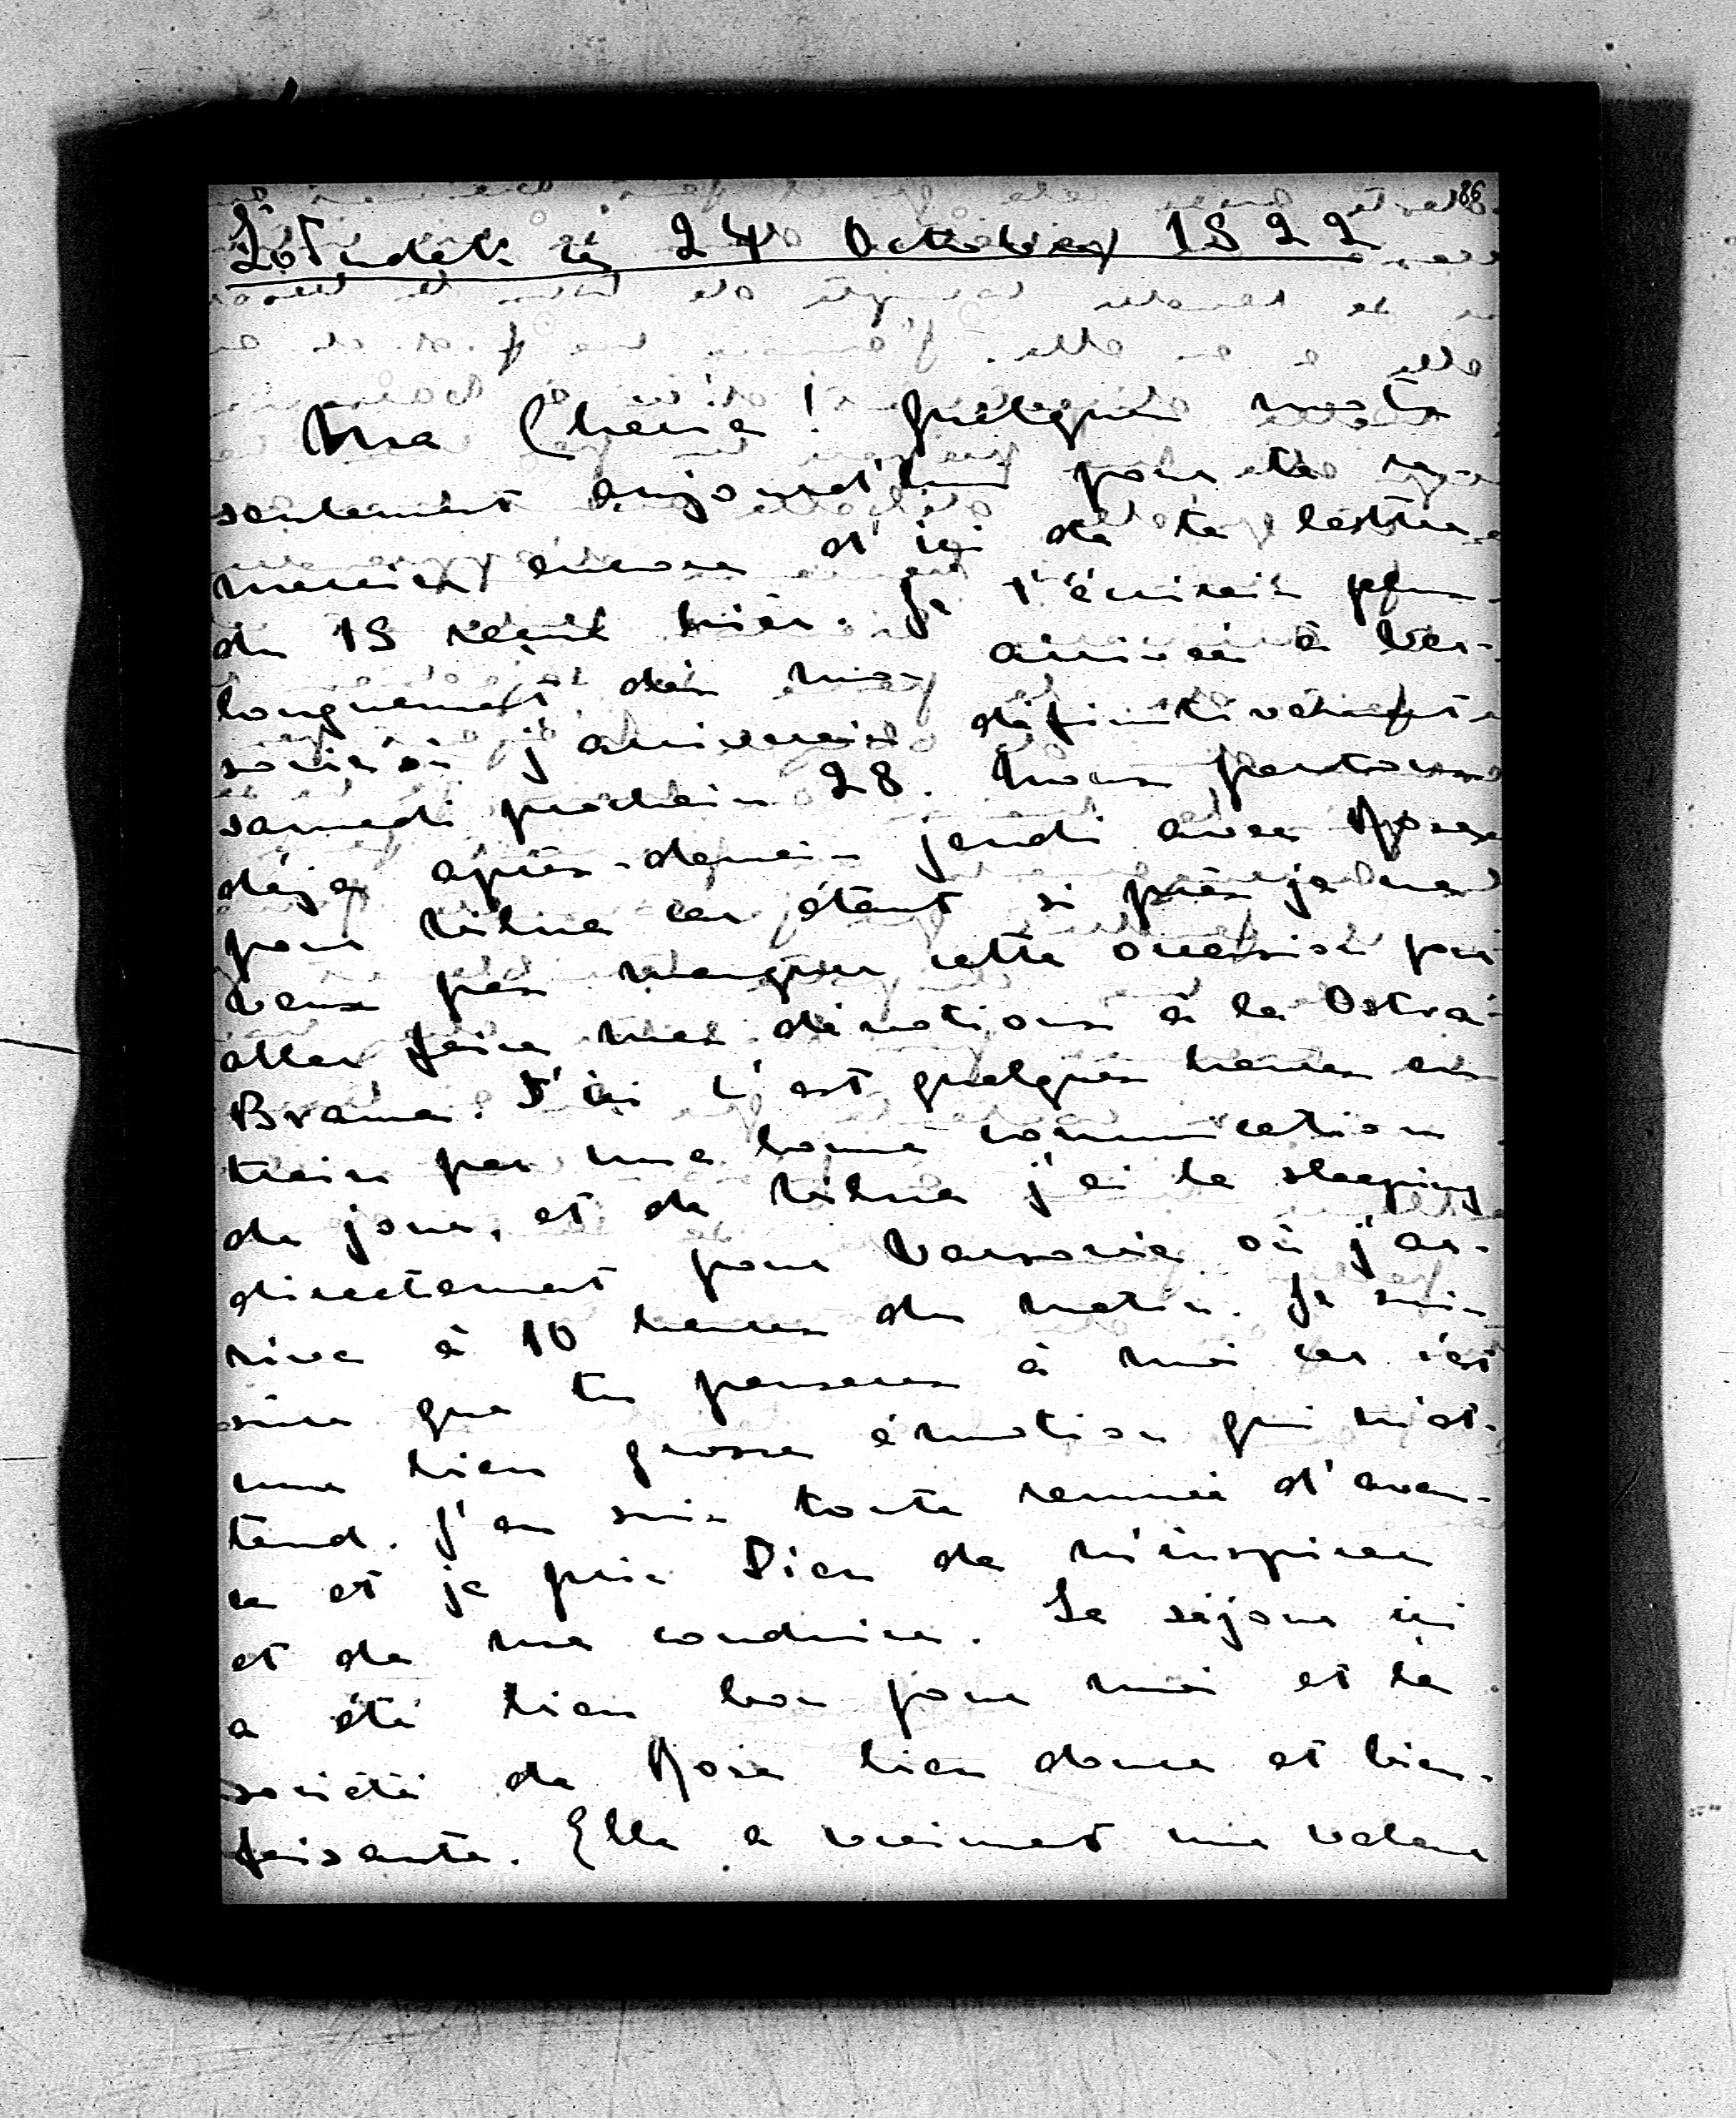 86
Żołudek ce 24 Octobre 1922
Ma Cherie! Quelques mots
seulement aujourd'hui pour te re-
mercier encore d'ici de ta lettre
du 19 reçue hier. Je t'écrirai plus
longuement dès mon arrivée à Var-
sovie où j'arriverai définitivement
samedi prochain 28. Nous partons
déjà après-demain jeudi avec Rose
pour Vilna car étant si près je ne
veux pas manquer cette occasion pour
aller faire mes dévotions à la Ostra
Brama. D'ici c'est quelques heures en
train par une bonne communication
de jour, et de Vilna j'ai le sleeping
directement pour Varsovie où j'ar-
rive à 10 heures du matin. Je suis
sûre que tu penseras à moi car c'est
une bien grosse émotion qui m'at-
tend. J'en suis toute remuée d'avan-
ce et je prie Dieu de m'inspirer
et de me conduire. Le séjour ici
a été bien bon pour moi et la
société de Rose bien douce et bien-
faisante. Elle a vraiment une valeur